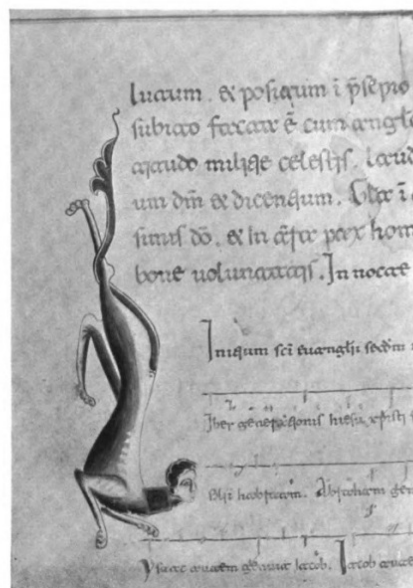 lutum. & positum i psepio
subito facta ē cum angeli
titudo militie celestis. laud
um dm & dicentium. Glar i
simis dō. & in terra pax hom
bone uoluntatis. In nocte
Initium sci euanglii secdm
iber generationis hiesu xpisti
Ysaac autem genuit Iacob. Iacob autem